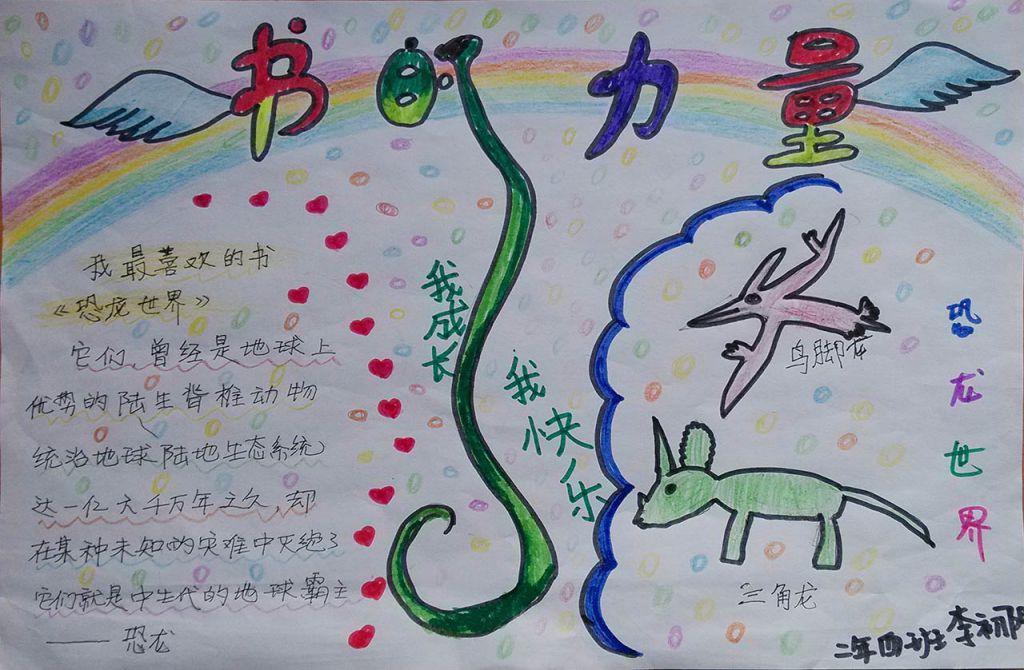 书的力量
我最喜欢的书
《恐龙世界》
它们,曾经是地球上
优势的陆生脊椎动物
统治地球陆地生态系统
达一亿六千万年之久,却
在某种未知的灾难中灭绝了
它们就是中生代的地球霸主
—— 恐龙
我成长
我快乐
鸟脚龙
三角龙
恐龙世界
二年四班 李初